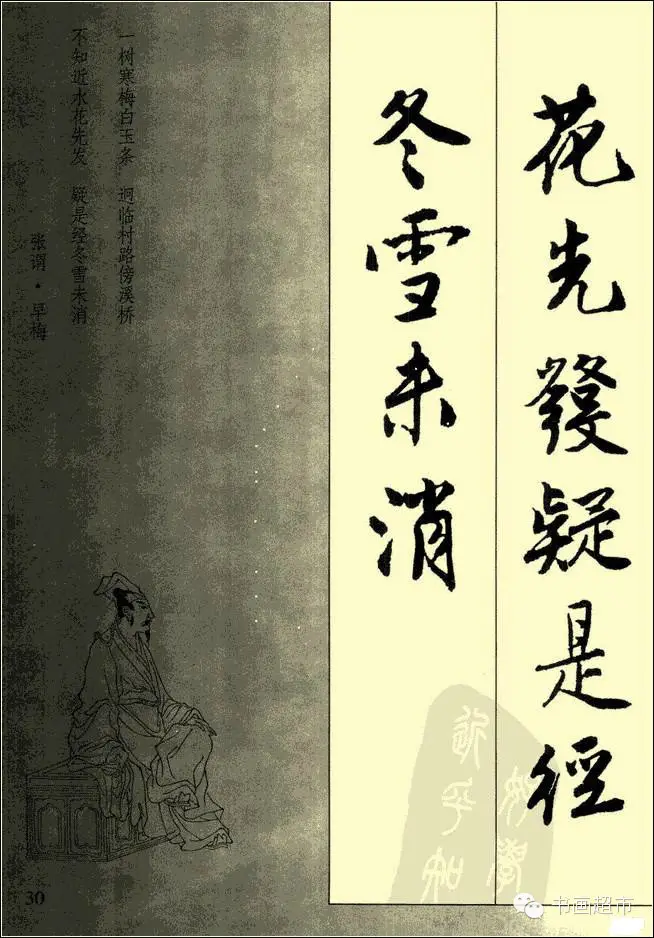 花先發疑是徑
冬雪未消
一树寒梅白玉条 迥临村路傍溪桥
不知近水花先发 疑是经冬雪未消
张谓·早梅
好學
近乎知
30
书画超市